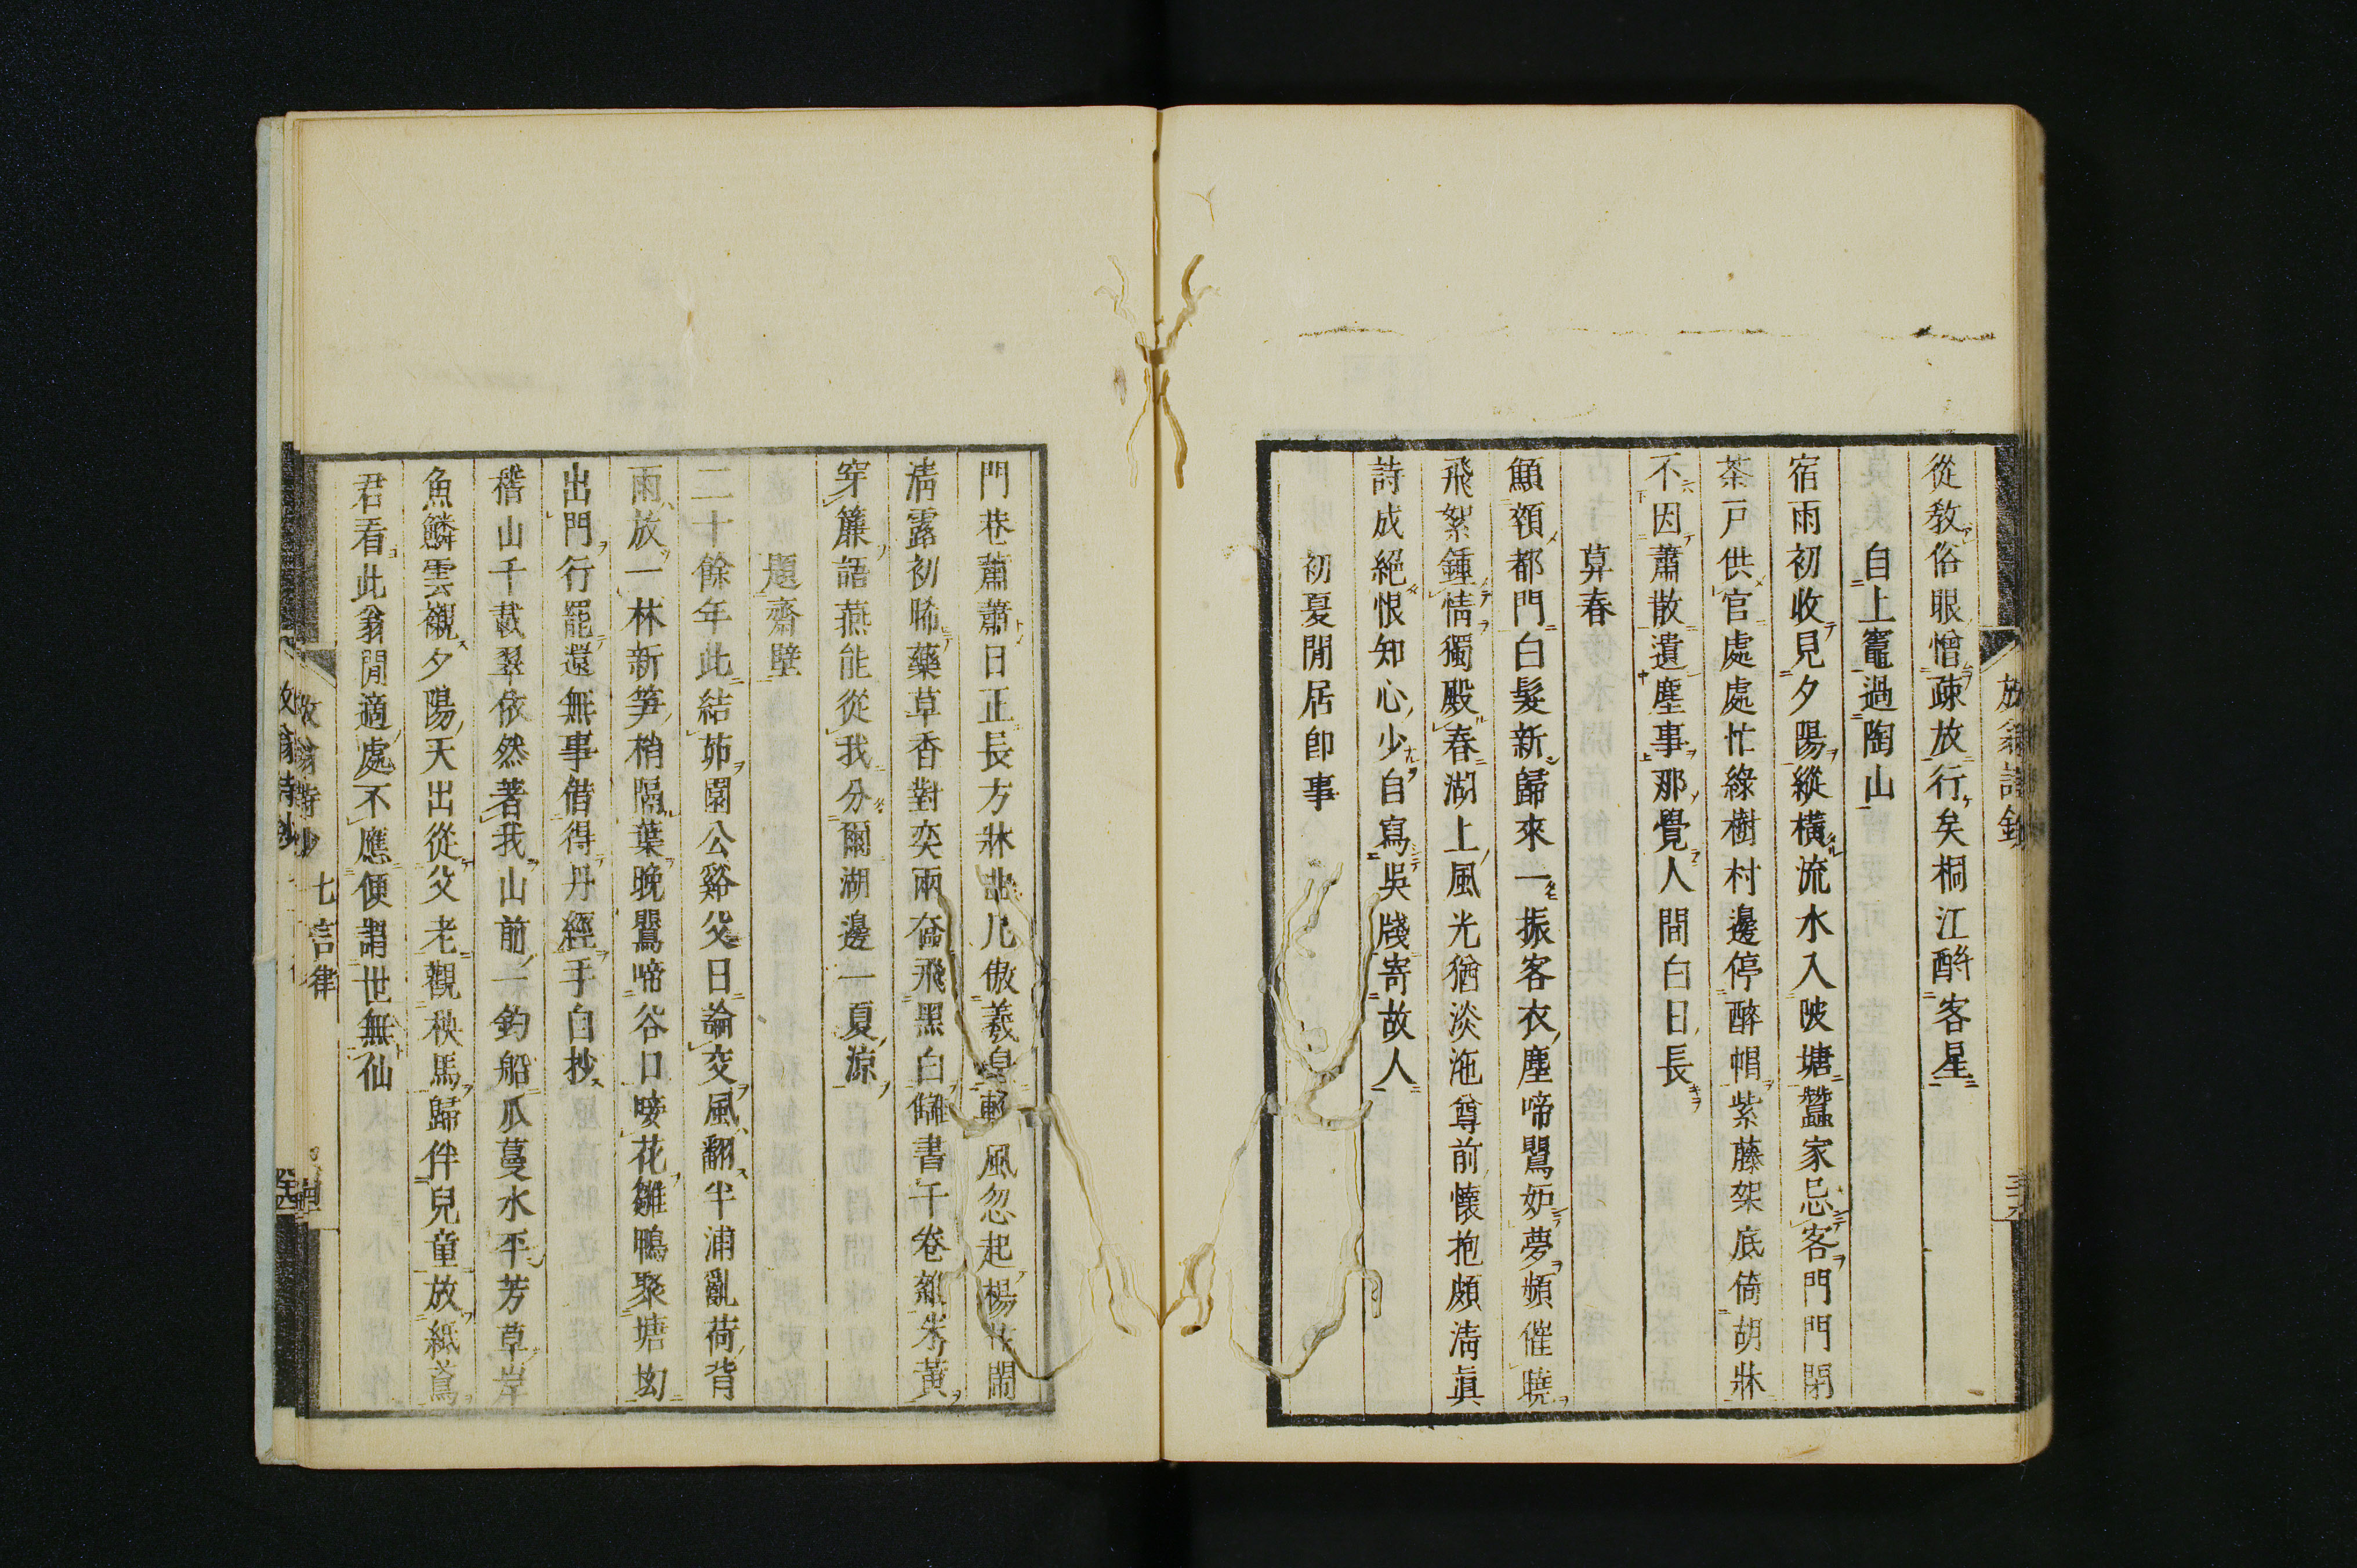 放翁詩鈔
從敎俗眼憎疎放行矣桐江酹客星
自上竈過陶山
宿雨初收見夕陽縱橫流水入陂塘蠶家忌客門門閉
茶戸供官處處忙綠樹村邊停醉帽紫藤架底倚胡牀
不因蕭散遺塵事那覺人間白日長
莫春
顦顇都門白髮新歸來一振客衣塵啼鶯妒夢頻催曉
飛絮鍾情獨殿春湖上風光猶淡沲尊前懷抱頗淸眞
詩成絕恨知心少自寫吳牋寄故人
初夏閒居卽事
門巷蕭蕭日正長方牀曲几傲羲皇輕風忽起楊花鬧
淸露初晞藥草香對奕兩奩飛黑白讎書千卷雜朱黃
穿簾語燕能從我分爾湖邊一夏涼
題齋壁
二十餘年此結茆園公谿父日論交風翻半浦亂荷背
雨放一林新筍梢隔葉晚鶯啼谷口唼花雛鴨聚塘坳
出門行罷還無事借得丹經手自抄
稽山千載翠依然著我山前一釣船瓜蔓水平芳草岸
魚鱗雲襯夕陽天出從父老觀秧馬歸伴兒童放紙鳶
君看此翁閒適處不應便謂世無仙
放翁詩鈔 七言律